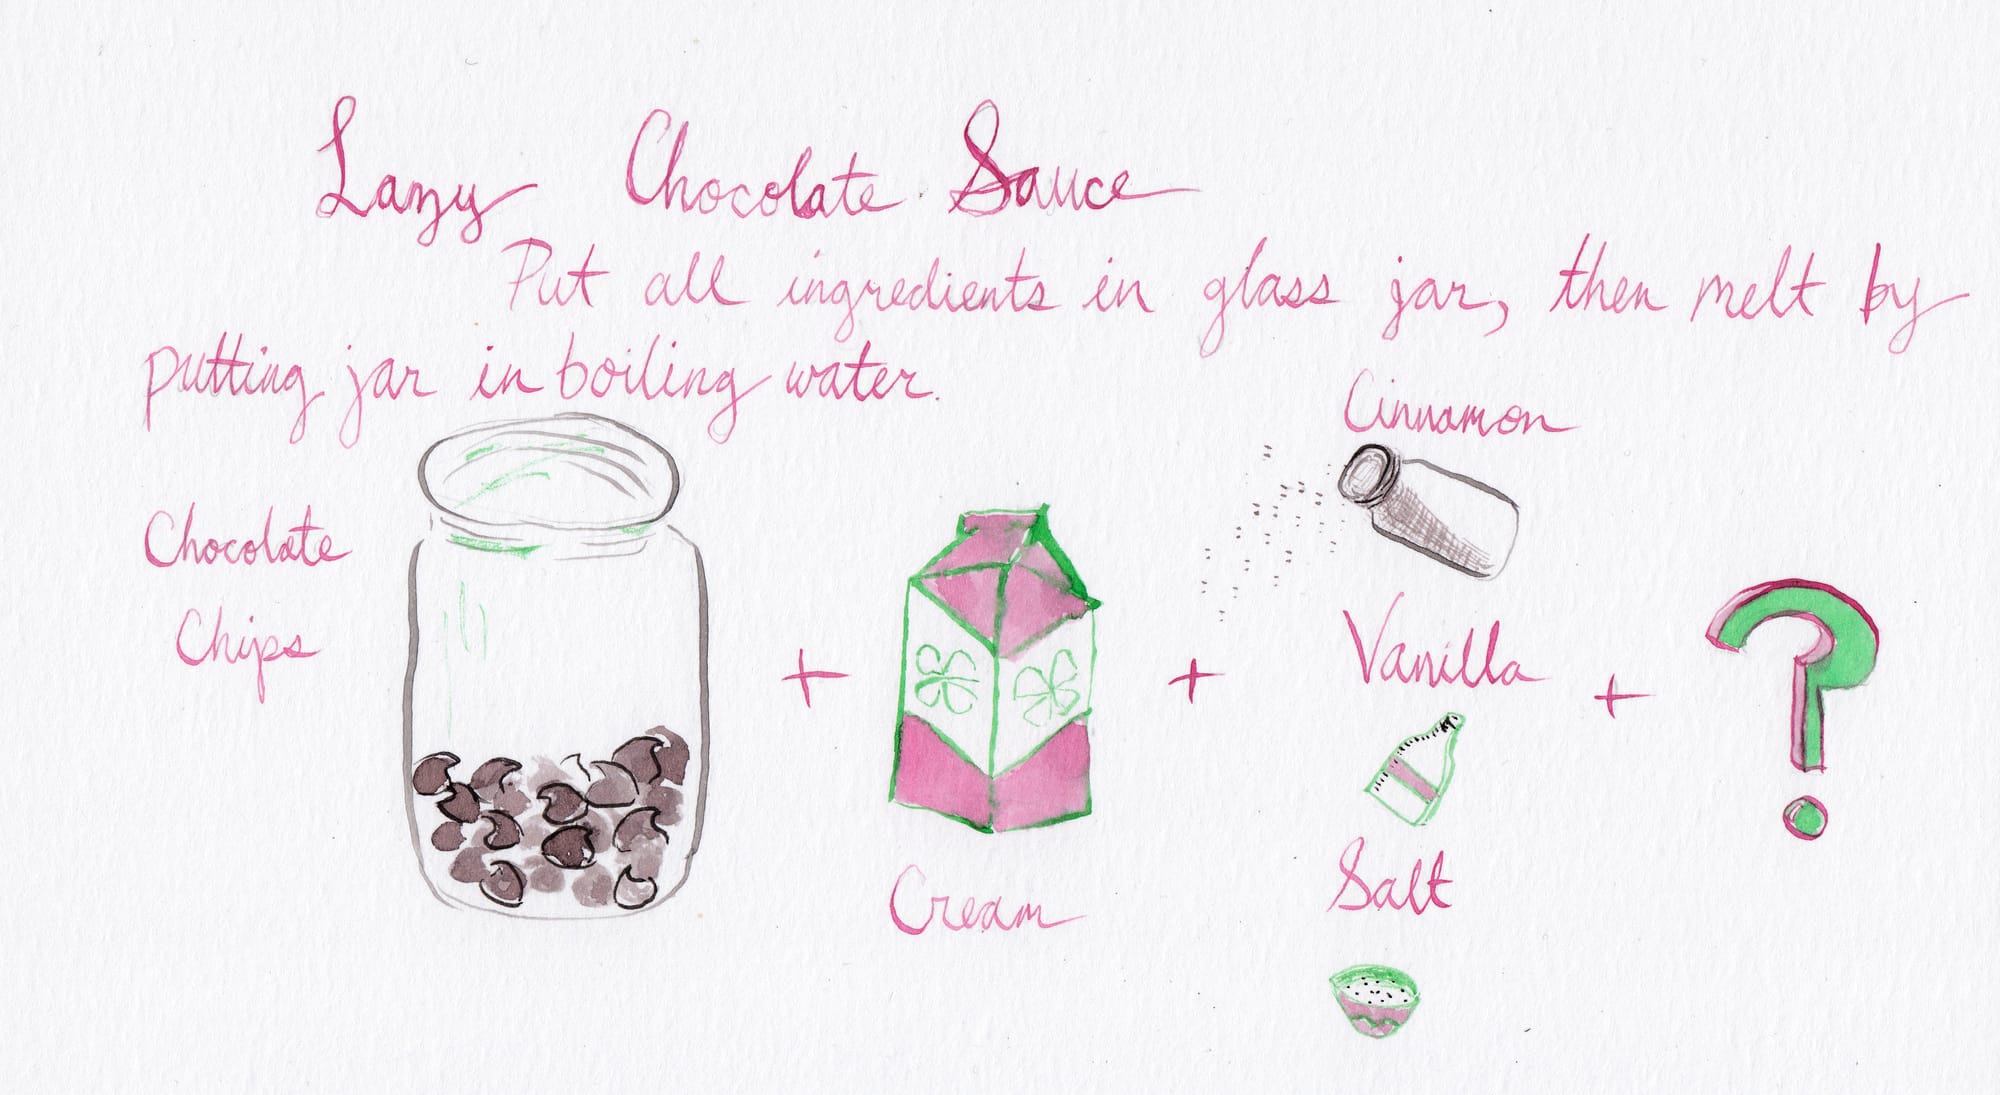 Lazy Chocolate Sauce
Put all ingredients in glass jar, then melt by
putting jar in boiling water.
Chocolate
Chips
+
Cream
+
Cinnamon
Vanilla
Salt
+
?